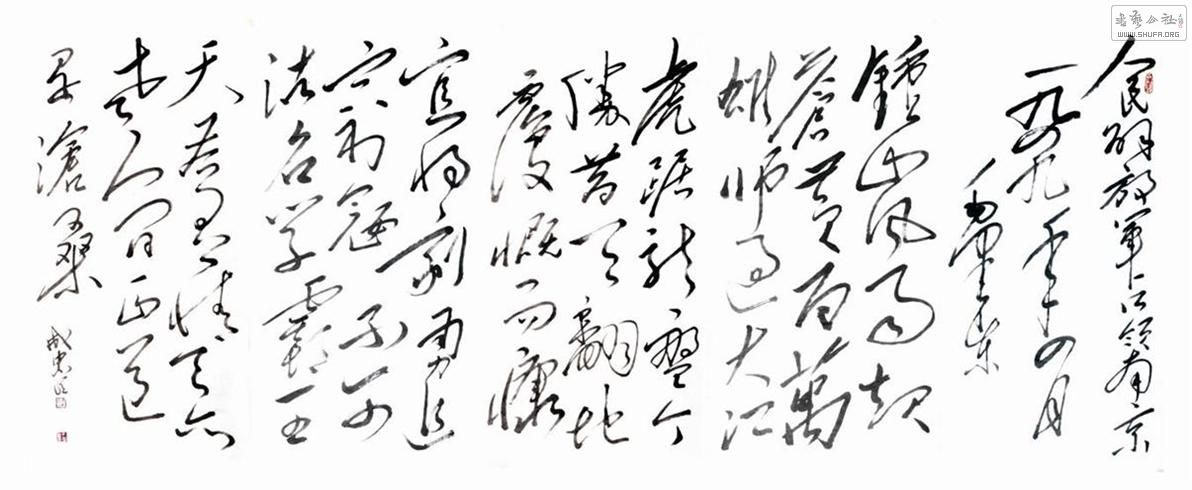 人民解放軍占领南京
一九四九年四月
毛澤東
鍾山风雨起
蒼黄百萬
雄师过大江
虎踞龙盘今
勝昔天翻地
覆慨而慷
宜将剩勇追
穷寇不可
沽名学霸王
天若有情天亦
老人间正道
是滄桑
书艺公社
WWW.SHUFA.ORG